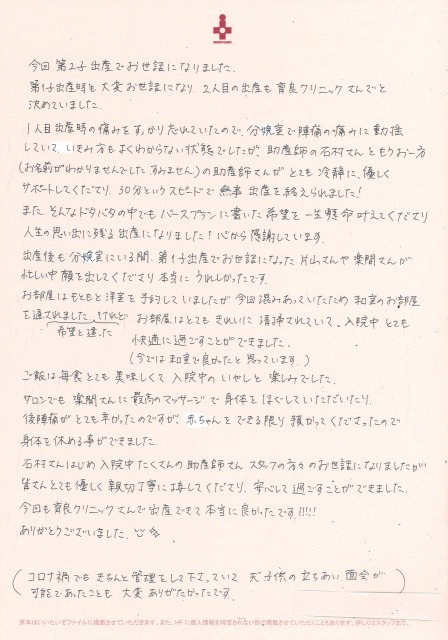 今回 第2子 出産でお世話になりました。
第1子出産時も大変お世話になり、2人目の出産も育良クリニックさんでと
決めていました。
1人目出産時の痛みをすっかり忘れていたので、分娩室で陣痛の痛みに動揺
していて、いきみ方もよくわからない状態でしたが、助産師の石村さんともうお一方
(お名前がわかりませんでした。すみません)の助産師さんがとても冷静に、優しく
サポートしてくださり、30分というスピードで無事出産を終えられました!
また、そんなドタバタの中でもバースプランに書いた希望を一生懸命叶えてくださり
人生の思い出に残る出産になりました!心から感謝しています。
出産後も分娩室にいる間、第1子出産でお世話になった片山さんや楽間さんが
忙しい中顔を出してくださり本当にうれしかったです。
お部屋はもともと洋室を予約していましたが今回混みあっていたため和室のお部屋
を通されました。けれど お部屋はとてもきれいに清掃されていて、入院中とても
希望と違った
快適に過ごすことができました。
(今では和室で良かったと思っています。)
ご飯は毎食とても美味しくて入院中のいやしと楽しみでした。
サロンでも楽間さんに最高のマッサージで身体をほぐしていただいたり、
後陣痛がとても辛かったのですが、赤ちゃんをできる限り預かってくださったので
身体を休める事ができました。
石村さんはじめ入院中たくさんの助産師さん、スタッフの方々のお世話になりましたが
皆さんとても優しく親切丁寧に接してくださり、安心して過ごすことができました。
今回も育良クリニックさんで出産できて本当に良かったです!!!!!
ありがとうございました。
(コロナ禍でもきちんと管理をして下さっていて 夫、子供の立ちあい、面会が
可能であったことも大変ありがたかったです。)
原本はいいたいそファイルに掲載させていただきます。また、HFに個人情報を特定されない形で掲載させていただくこともあります。詳しくはスタッフまで。